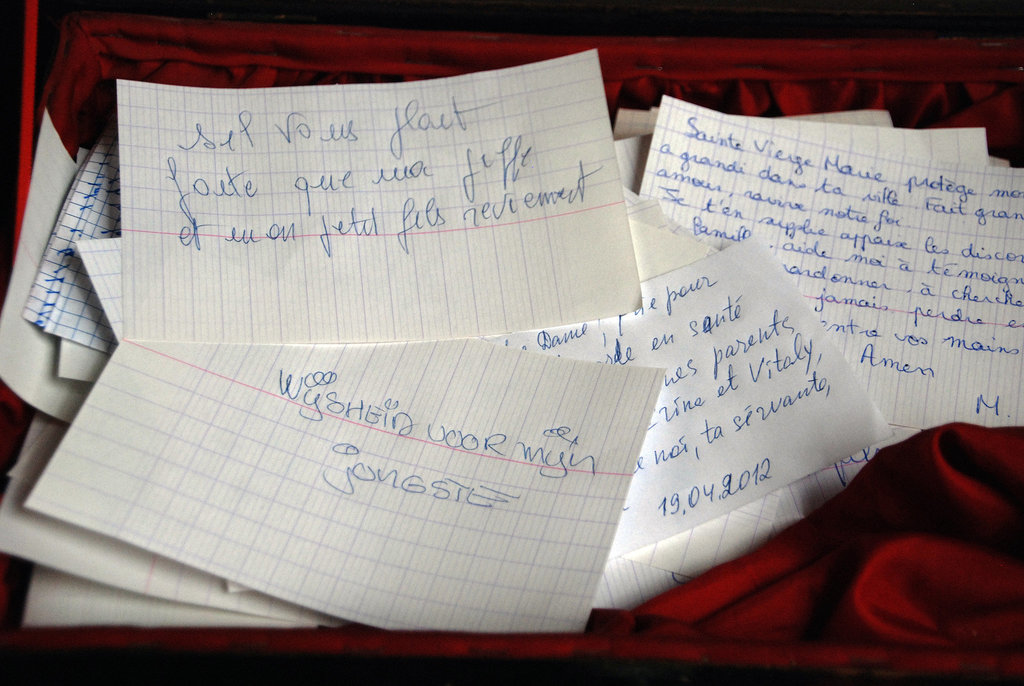 sil vous plait
faite que ma fille
et mon petit fils reviennent
Wijsheid voor mijn
jongste
Dame, prie pour
garde en santé
mes parents,
et Vitaly,
moi, ta servante,
19.04.2012
Sainte Vierge Marie protège mon
a grandi dans ta ville. Fait gran
amour, ravive notre foi
Je t'en supplie apaise les discor
famille, aide moi à témoign
pardonner, à cherche
jamais perdre
entre vos mains
Amen
M.